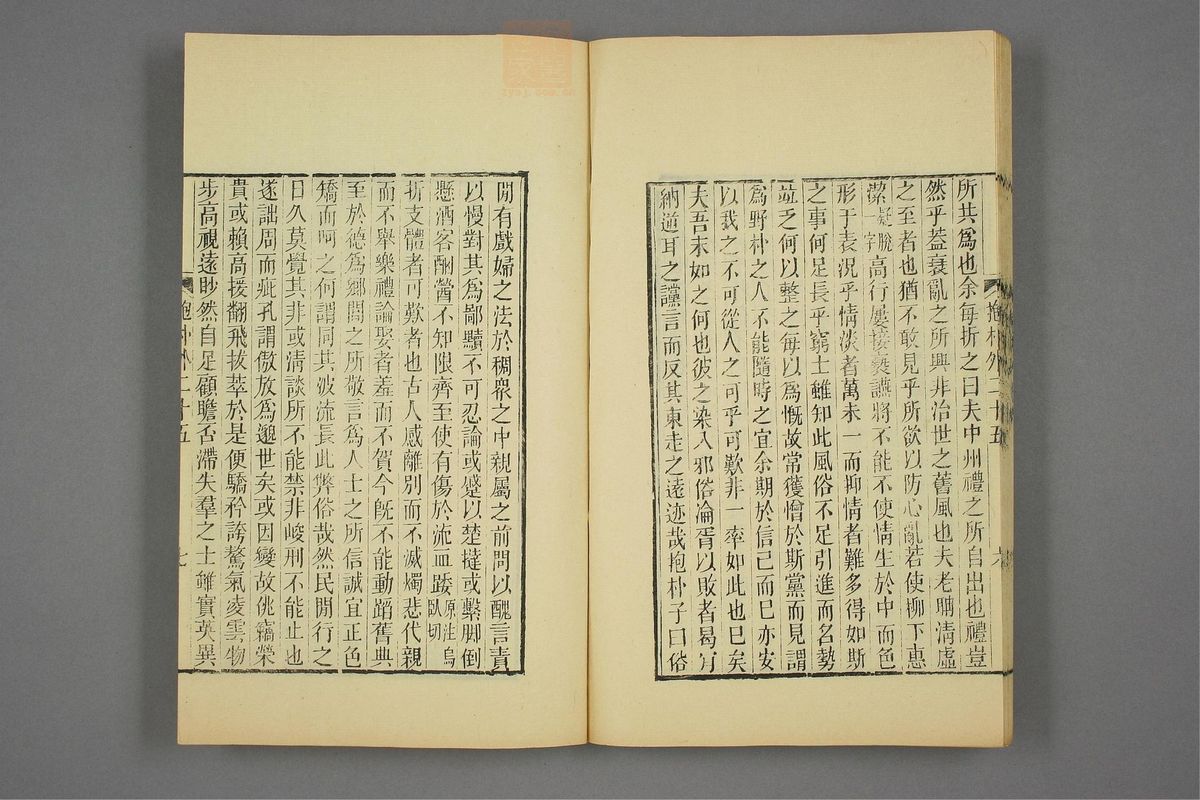 所共爲也余每折之曰夫中州禮之所自出也禮豈
然乎葢衰亂之所興非治世之舊風也夫老聃淸虛
之至者也猶不敢見乎所欲以防心亂若使柳下惠
潔疑脫一字高行屢接褻讌將不能不使情生於中而色
形于表況乎情淡者萬未一而抑情者難多得如斯
之事何足長乎窮士雖知此風俗不足引進而名勢
竝乏何以整之每以爲慨故常獲憎於斯黨而見謂
爲野朴之人不能隨時之宜余期於信己而巳亦安
以我之不可從人之可乎可歎非一率如此也巳矣
夫吾末如之何也彼之染入邪俗淪胥以敗者曷肯
納逆耳之讜言而反其東走之遠迹哉抱朴子曰俗
抱朴外二十五
六
閒有戲婦之法於稠衆之中親屬之前問以醜言責
以慢對其爲鄙黷不可忍論或蹙以楚撻或繫腳倒
懸酒客酗醟不知限齊至使有傷於流血踒原注烏臥切
折支體者可歎者也古人感離別而不滅燭悲代親
而不舉樂禮論娶者羞而不賀今旣不能動蹈舊典
至於德爲鄉閭之所敬言爲人士之所信誠宜正色
矯而呵之何謂同其波流長此弊俗哉然民閒行之
日久莫覺其非或淸談所不能禁非峻刑不能止也
遂詘周而疵孔謂傲放爲邈世矣或因變故佻竊榮
貴或賴高援翻飛拔萃於是便驕矜誇驁氣凌雲物
步高視遠眇然自足顧瞻否滯失羣之士雖實英異
抱朴外二十五
七